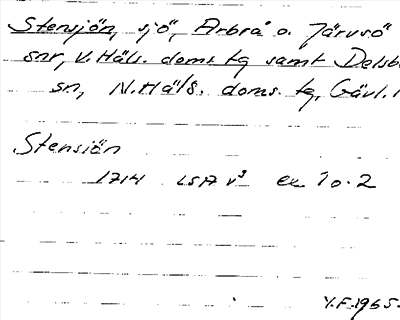 Stensjön, sjö, Arbrå o. Järvsö
snr, V. Häls. doms. tg samt Delsb
sn, N. Häls. doms. tg, Gävl. l
Stensiön
1714 LSA v³ ex 1 o. 2
Y.F. 1965.